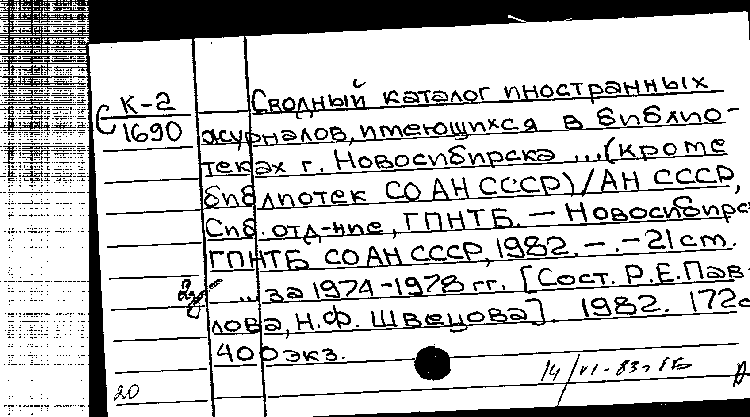 С К-2
1690
Сводный каталог иностранных
журналов, имеющихся в библио-
теках г. Новосибирска ...(кроме
библиотек СО АН СССР)/АН СССР,
Сиб. отд-ние, ГПНТБ. — Новосибирск
ГПНТБ СО АН СССР, 1982. -.- 21 см.
... за 1974-1978 гг. [Сост. Р.Е. Пав-
лова, Н.Ф. Швецова]. 1982. 172с
400 экз.
20